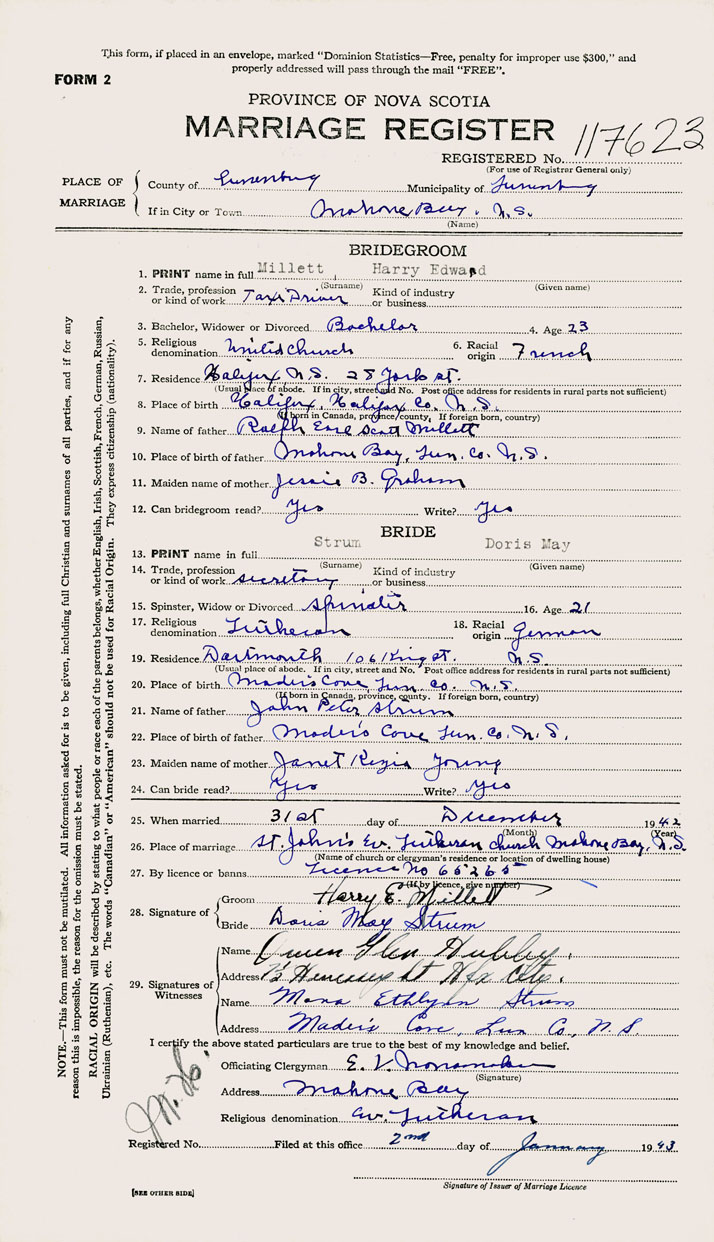 This form, if placed in an envelope, marked "Dominion Statistics—Free, penalty for improper use $300," and
properly addressed will pass through the mail "FREE".
FORM 2
PROVINCE OF NOVA SCOTIA
MARRIAGE REGISTER
117623
REGISTERED No.
(For use of Registrar General only)
PLACE OF MARRIAGE
County of Lunenburg Municipality of Lunenburg
If in City or Town Mahone Bay, N.S.
(Name)
BRIDEGROOM
1. PRINT name in full Millett, Harry Edward
(Surname) (Given name)
2. Trade, profession or kind of work Taxi Driver Kind of industry or business
3. Bachelor, Widower or Divorced Bachelor 4. Age 23
5. Religious denomination United Church 6. Racial origin French
7. Residence Halifax N.S. 25 York st.
(Usual place of abode. If in city, street and No. Post office address for residents in rural parts not sufficient)
8. Place of birth Halifax, Halifax Co. N.S.
(If born in Canada, province, county. If foreign born, country)
9. Name of father Ralph Earl Scott Millett
10. Place of birth of father Mahone Bay, Lun. Co. N.S.
11. Maiden name of mother Jessie B. Graham
12. Can bridegroom read? Yes Write? Yes
BRIDE
13. PRINT name in full Strum Doris May
(Surname) (Given name)
14. Trade, profession or kind of work secretary Kind of industry or business
15. Spinster, Widow or Divorced Spinster 16. Age 21
17. Religious denomination Lutheran 18. Racial origin German
19. Residence Dartmouth 106 King st. N.S.
(Usual place of abode. If in city, street and No. Post office address for residents in rural parts not sufficient)
20. Place of birth Mader's Cove, Lun. Co. N.S.
(If born in Canada, province, county. If foreign born, country)
21. Name of father John Peter Strum
22. Place of birth of father Mader's Cove Lun. Co. N.S.
23. Maiden name of mother Janet Young
24. Can bride read? Yes Write? Yes
25. When married 31st day of December 1942
(Month) (Year)
26. Place of marriage St. John's Ev. Lutheran church Mahone Bay, N.S.
(Name of church or clergyman's residence or location of dwelling house)
27. By licence or banns Licence No 65265
(If by licence, give number)
28. Signature of
Groom Harry E. Millett
Bride Doris May Strum
29. Signatures of Witnesses
Name Owen Glen Hubley.
Address St Hfx City.
Name Mona Ethlynn Strum
Address Mader's Cove, Lun Co, N.S.
I certify the above stated particulars are true to the best of my knowledge and belief.
Officiating Clergyman E. V. Nonamaker
(Signature)
Address Mahone Bay
Religious denomination Ev. Lutheran
Registered No. Filed at this office 2nd day of January 1943
Signature of Issuer of Marriage Licence
[SEE OTHER SIDE]
NOTE.—This form must not be mutilated. All information asked for is to be given, including full Christian and surnames of all parties, and if for any
reason this is impossible, the reason for the omission must be stated.
RACIAL ORIGIN will be described by stating to what people or race each of the parents belongs, whether English, Irish, Scottish, French, German, Russian,
Ukrainian (Ruthenian), etc. The words "Canadian" or "American" should not be used for Racial Origin. They express citizenship (nationality).